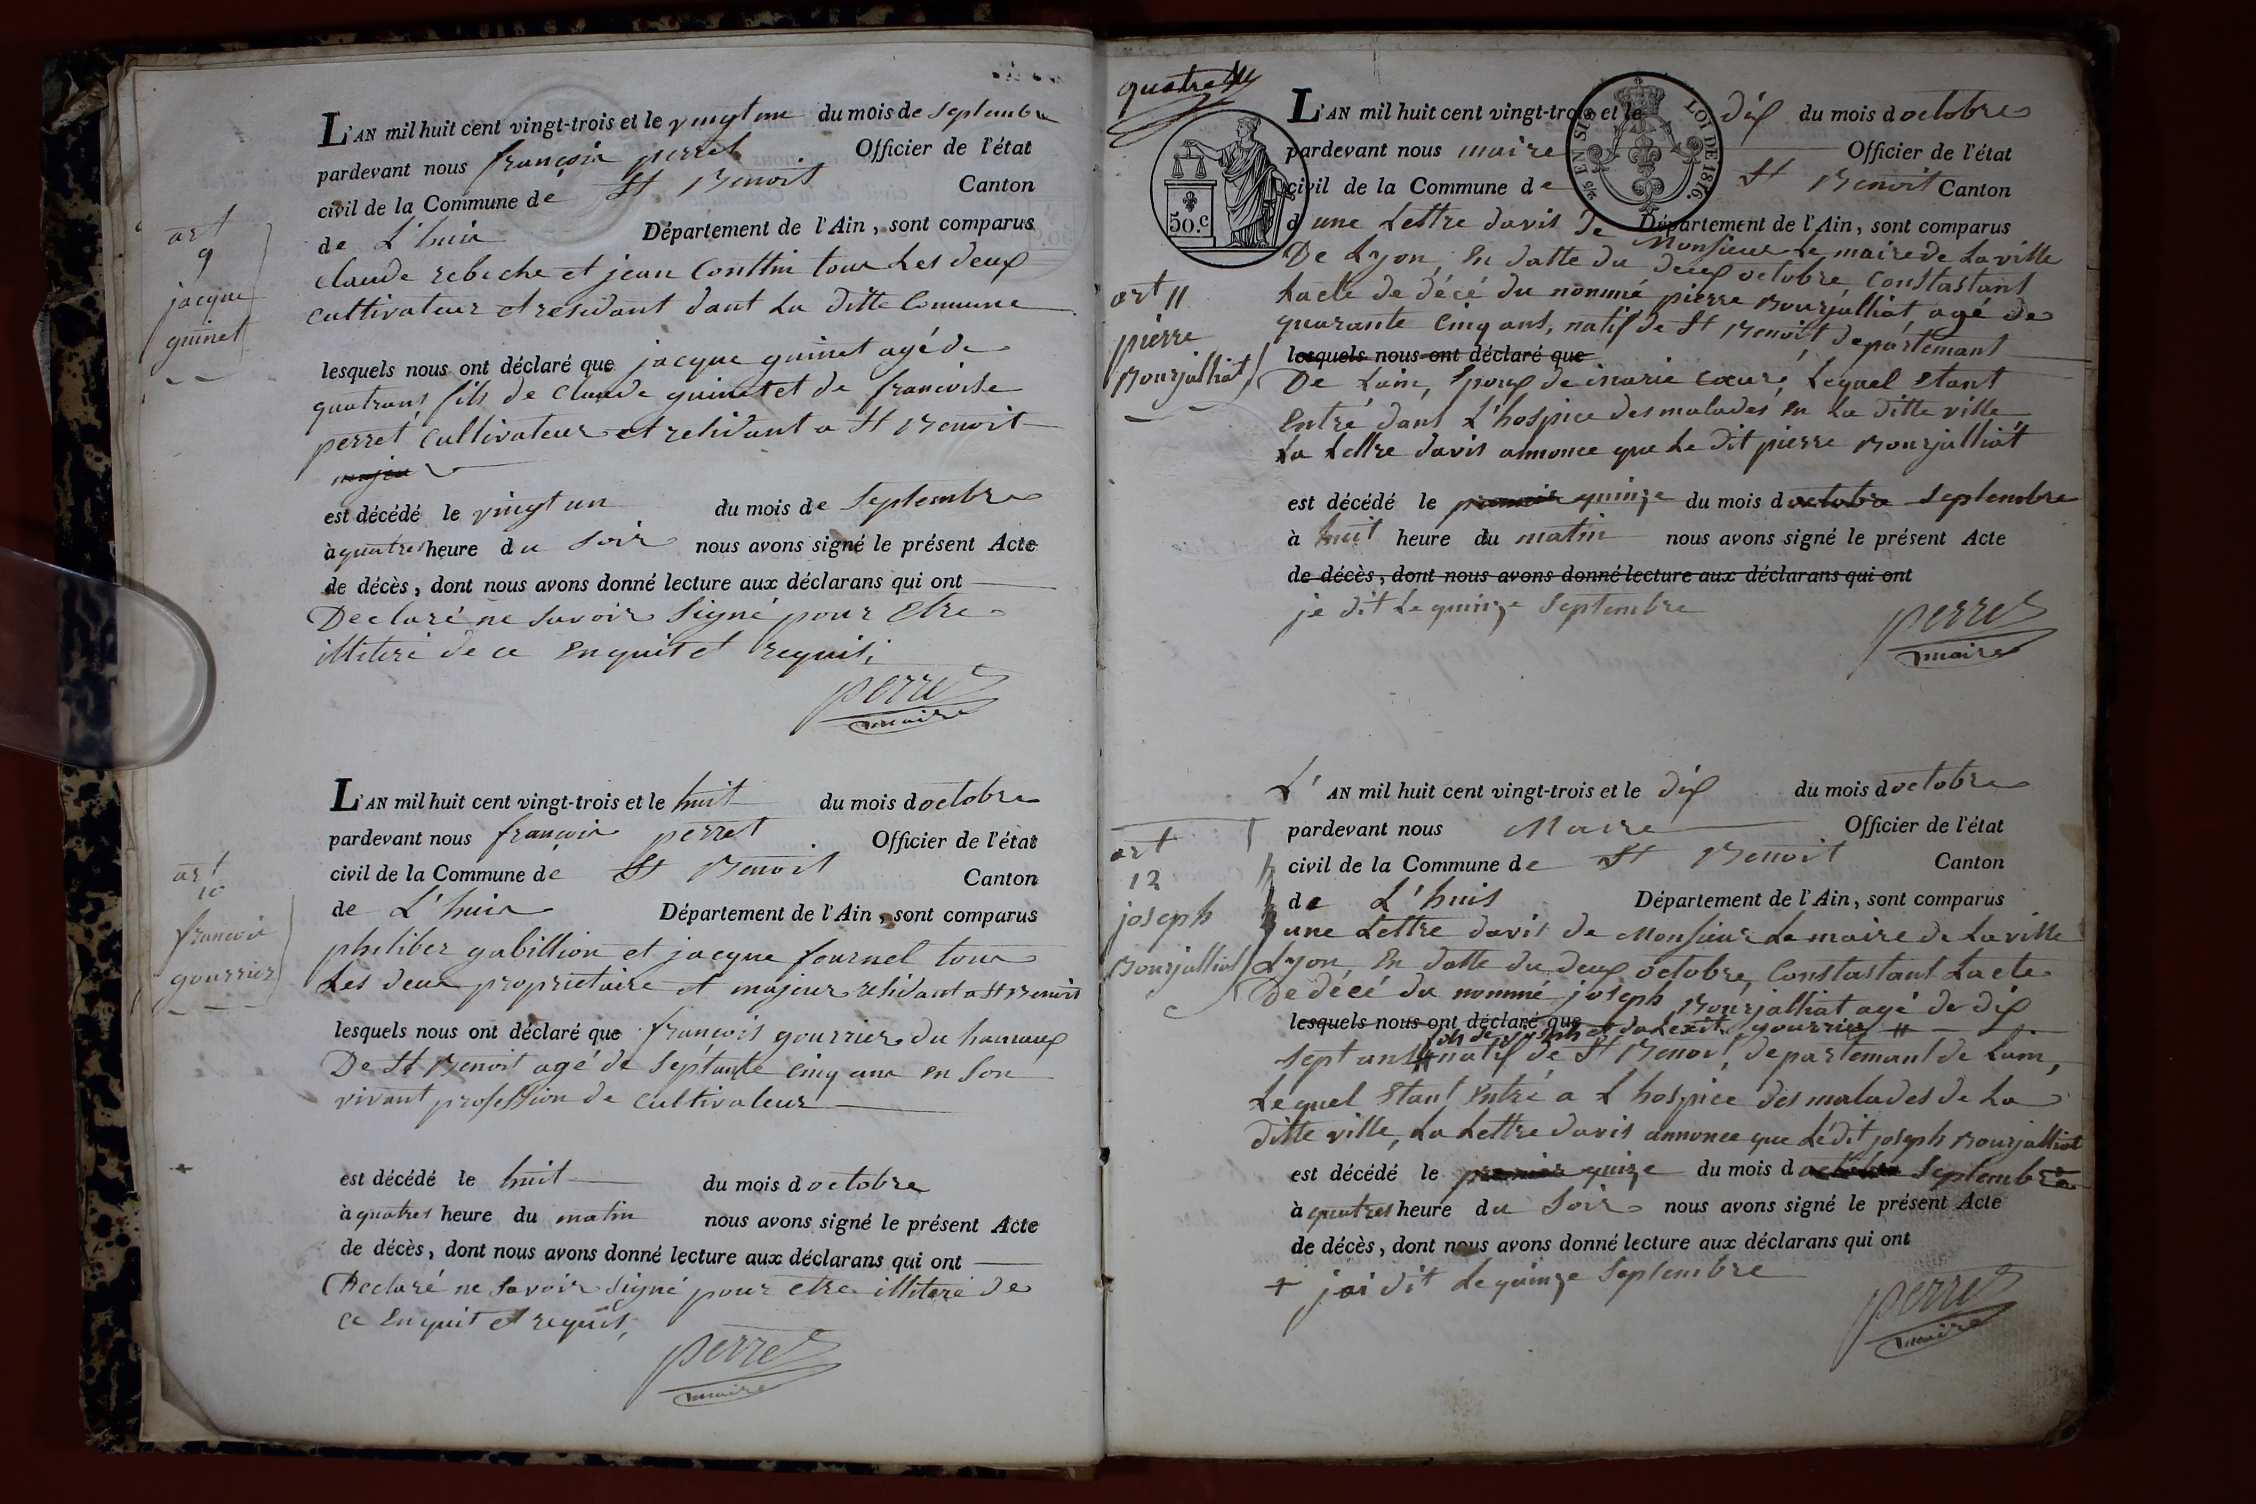 L'AN mil huit cent vingt-trois et le vingt un du mois de septembre
pardevant nous françois perret Officier de l'état
civil de la Commune de St Benoit Canton
de L'huis Département de l'Ain, sont comparus
Claude rebeche et jean Conttin tous Les deux
cultivateur et residant dans La ditte Comune
art
9
jacque
guinet
lesquels nous ont déclaré que jacque guinet agé de
quatrans fils de Claude guinet et de francoise
perret cultivateur et residant a St Benoit
majeu
est décédé le vingt un du mois de Septembre
à quatres heure du Soir nous avons signé le présent Acte
de décès, dont nous avons donné lecture aux déclarans qui ont
Declaré ne Savoir Signé pour Etre
illiteré de ce Enquit et requis;
perret
maire
L'AN mil huit cent vingt-trois et le huit du mois doctobre
pardevant nous françois perret Officier de l'état
civil de la Commune de St Benoit Canton
de L'huis Département de l'Ain, sont comparus
art
10
francois
gourrier
philiber gabillion et jacque fournel tous
Les deux proprietaire et majeur residant a St Benoit
lesquels nous ont déclaré que françois gourrier du hamaux
De St Benoit agé de Septante Cinq ans en Son
vivant profession de Cultivateur
est décédé le huit du mois doctobre
à quatres heure du matin nous avons signé le présent Acte
de décès, dont nous avons donné lecture aux déclarans qui ont
Declaré ne Savoir Signé pour etre illiteré de
ce Enquit et requis,
perret
maire
quatre
50.C
EN SUS
LOI DE 1816.
L'AN mil huit cent vingt-trois et le dix du mois doctobre
pardevant nous maire Officier de l'état
civil de la Commune de St Benoit Canton
d une Lettre davis De Département de l'Ain, sont comparus
Monsieur Le maire de La ville
De Lyon, En datte du deux octobre Constastant
Lacte de décé du nommé pierre Bourjalliat, agé de
quarante Cinq ans, natif de St Benoit departemant
art 11
pierre
Bourjalliat
lesquels nous ont déclaré que
De Lain, Epoux de marie cœur, Lequel Etant
Entré dans L'hospice des malades En La ditte ville
La Lettre davis annonce que Le dit pierre Bourjalliat
est décédé le premier quinze du mois doctobre Septembre
à huit heure du matin nous avons signé le présent Acte
de décès, dont nous avons donné lecture aux déclarans qui ont
je dit Le quinze Septembre
perret
maire
L'AN mil huit cent vingt-trois et le dix du mois doctobre
pardevant nous Maire Officier de l'état
civil de la Commune de St Benoit Canton
de L'huis Département de l'Ain, sont comparus
art
12
joseph
Bourjalliat
une Lettre davis de Monsieur Le maire de La ville
Lyon, En datte du deux octobre, Constastant Lacte
De décé du nommé joseph Bourjalliat agé de dix
lesquels nous ont déclaré que
fils de joseph et dalexit gourrier #
Sept ans # natif de St Benoit, departemant de Lain,
Lequel Etant Entré a L hospice des malades de La
ditte ville, La Lettre davis annonce que Le dit joseph Bourjalliat
est décédé le premier quinze du mois doctobre Septembre
à quatres heure du Soir nous avons signé le présent Acte
de décès, dont nous avons donné lecture aux déclarans qui ont
+ jai dit Le quinze Septembre
perret
maire